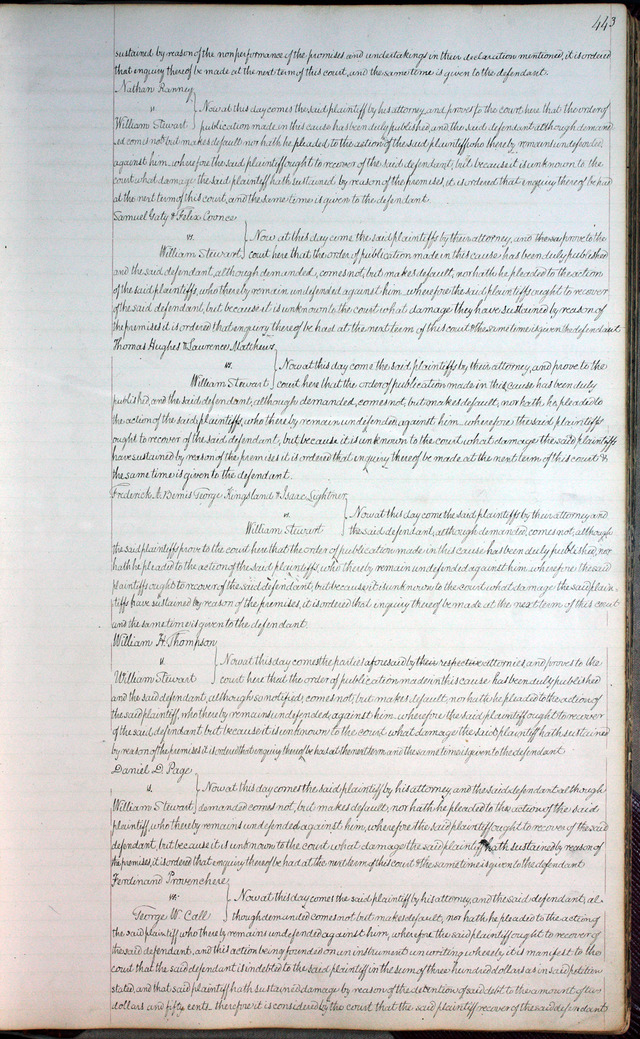 443
sustained by reason of the nonperformance of the promises and undertakings in their declaration mentioned, it is ordered
that enquiry thereof be made at the next term of this court, and the same time is given to the defendant.
Nathan Ranney
vs Now at this day comes the said plaintiff by his attorney, and proves to the court here that the order of
William Stewart publication made in this cause has been duly published, and the said defendant although demand
ed comes not but makes default nor hath he pleaded to the action of the said plaintiff who thereby remains undefended
against him, wherefore the said plaintiff ought to recover of the said defendant, but because it is unknown to the
court what damage the said plaintiff hath sustained by reason of the premises, it is ordered that enquiry thereof be had
at the next term of this court, and the same time is given to the defendant.
Samuel Gaty & Felix Coonce
vs. Now at this day come the said plaintiffs by their attorney, and prove to the
William Stewart court here that the order of publication made in this cause has been duly published
and the said defendant, although demanded, comes not, but makes default, nor hath he pleaded to the action
of the said plaintiffs, who thereby remain undefended against him, wherefore the said plaintiffs ought to recover
of the said defendant, but because it is unknown to the court what damage they have sustained by reason of
the premises it is ordered that enquiry thereof be had at the next term of this court & the same time is given the defendant
Thomas Hughes & Lawrence Matthews
vs. Now at this day come the said plaintiffs by their attorney, and prove to the
William Stewart court here that the order of publication made in this cause has been duly
published, and the said defendant, although demanded, comes not, but makes default, nor hath he pleaded to
the action of the said plaintiffs, who thereby remain undefended against him, wherefore the said plaintiffs
ought to recover of the said defendant, but because it is unknown to the court what damage the said plaintiffs
have sustained by reason of the premises it is ordered that enquiry thereof be made at the next term of this court &
the same time is given to the defendant.
Frederick A. Bemis George Kingsland & Isaac Lightner
vs. Now at this day come the said plaintiffs by their attorney and
William Stewart the said defendant, although demanded, comes not, although
the said plaintiffs prove to the court here that the order of publication made in this cause has been duly published, nor
hath he pleaded to the action of the said plaintiffs, who thereby remain undefended against him wherefore the said
plaintiffs ought to recover of the said defendant, but because it is unknown to the court what damage the said plain-
tiffs have sustained by reason of the premises, it is ordered that enquiry thereof be made at the next term of this court
and the same time is given to the defendant
William H. Thompson
vs. Now at this day comes the parties aforesaid by their respective attornies and proves to the
William Stewart court here that the order of publication made in this cause has been duly published
and the said defendant, although so notified, comes not, but makes default, nor hath he pleaded to the action of
the said plaintiff, who thereby remains undefended, against him, wherefore the said plaintiff ought to recover
of the said defendant but because it is unknown to the court what damage the said plaintiff hath sustained
by reason of the premises it is ordered that enquiry thereof be had at the next term and the same time is given to the defendant
Daniel D. Page
vs. Now at this day comes the said plaintiff by his attorney, and the said defendant although
William Stewart demanded comes not, but makes default, nor hath he pleaded to the action of the said
plaintiff, who thereby remains undefended against him, wherefore the said plaintiff ought to recover of the said
defendant, but because it is unknown to the court what damage the said plaintiff hath sustained by reason of
the premises, it is ordered that enquiry thereof be had at the next term of this court & the same time is given to the defendant
Ferdinand Provenchere
vs. Now at this day comes the said plaintiff by his attorney, and the said defendant, al-
George W. Call though demanded comes not but makes default, nor hath he pleaded to the action of
the said plaintiff who thereby remains undefended against him, wherefore the said plaintiff ought to recover of
the said defendant, and this action being founded on an instrument in writing whereby it is manifest to the
court that the said defendant is indebted to the said plaintiff in the sum of three hundred dollars as in said petition
stated, and that said plaintiff hath sustained damage by reason of the detention of said debt to the amount of two
dollars and fifty cents. therefore it is considered by the court that the said plaintiff recover of the said defendant